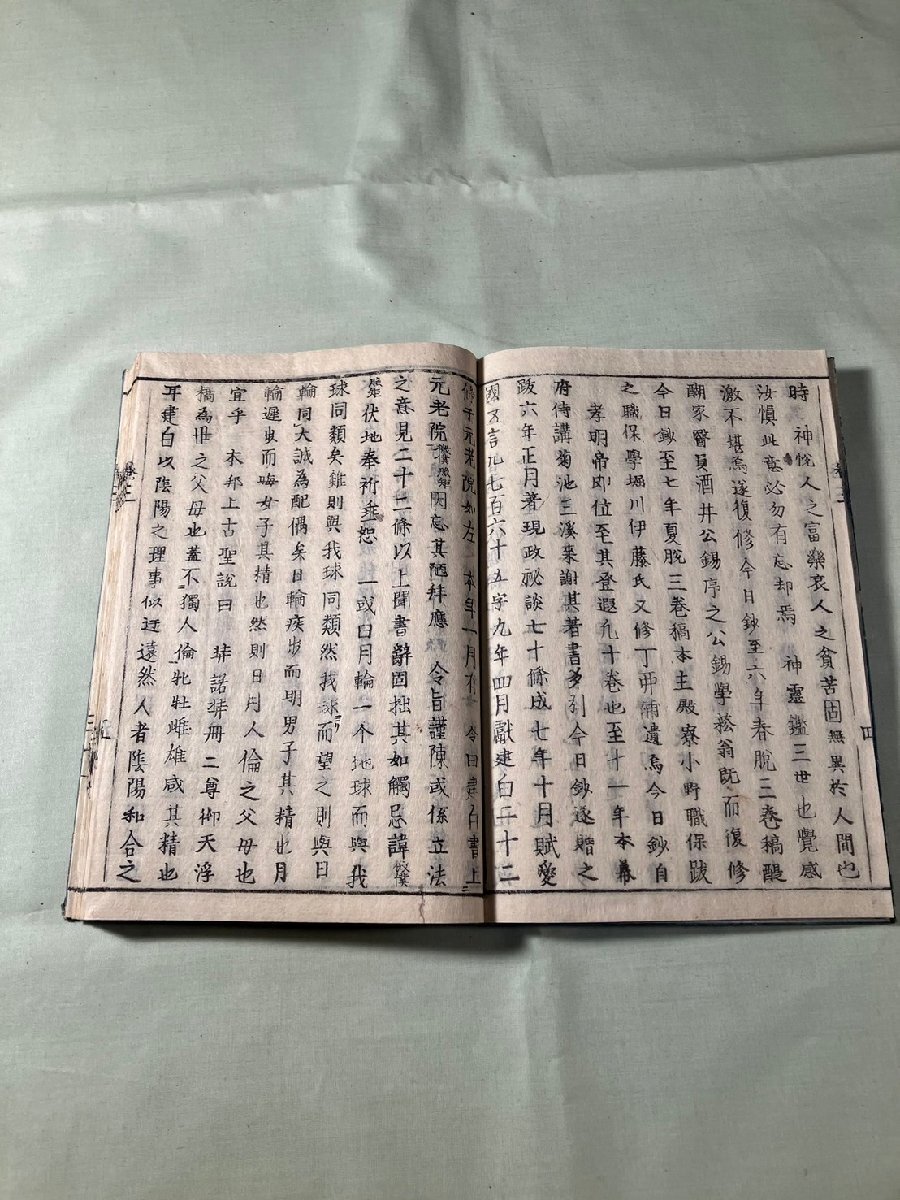 時 神悅人之富樂哀人之貧苦固無異於人間也
汝慎此意必勿有忘却焉 神靈鑑三世也覺感
激不堪焉遂復修今日鈔至六年春脫三卷稿醍
醐家醫員酒井公錫序之公錫學菘翁既而復修
今日鈔至七年夏脫三卷稿本主殿寮小野職保跋
之職保學堀川伊藤氏又修丁丑補遺焉今日鈔自
孝明帝即位至其登遐九十卷也至十一年本
府侍講菊池三溪來謝其著書多列今日鈔遂贈之
跋六年正月著現政秘談七十條成七年十月賦變
五言凡七百六十五字九年四月獻建白三十三
條于元老院如左 本年一月 今日建白書上
元老院 固忘其陋拜應 令旨謹陳或係立法
之意見二十二條以上聞書辭固拙其如觸忌諱
伏地奉祈 恕 一或曰月輪一個地球而與我
球同類矣雖則與我球同類然我球而望之則與日
輪同大誠為配偶矣日輪疾步而明男子其精也月
輪遲步而晦女子其精也然則日月人倫之父母也
宜乎 本邦上古聖說曰 諾冊二尊御天浮
橋為世之父母也蓋不獨人倫牝牡雌雄咸其精也
耳建白以陰陽之理事似迂遠然人者陰陽和合之